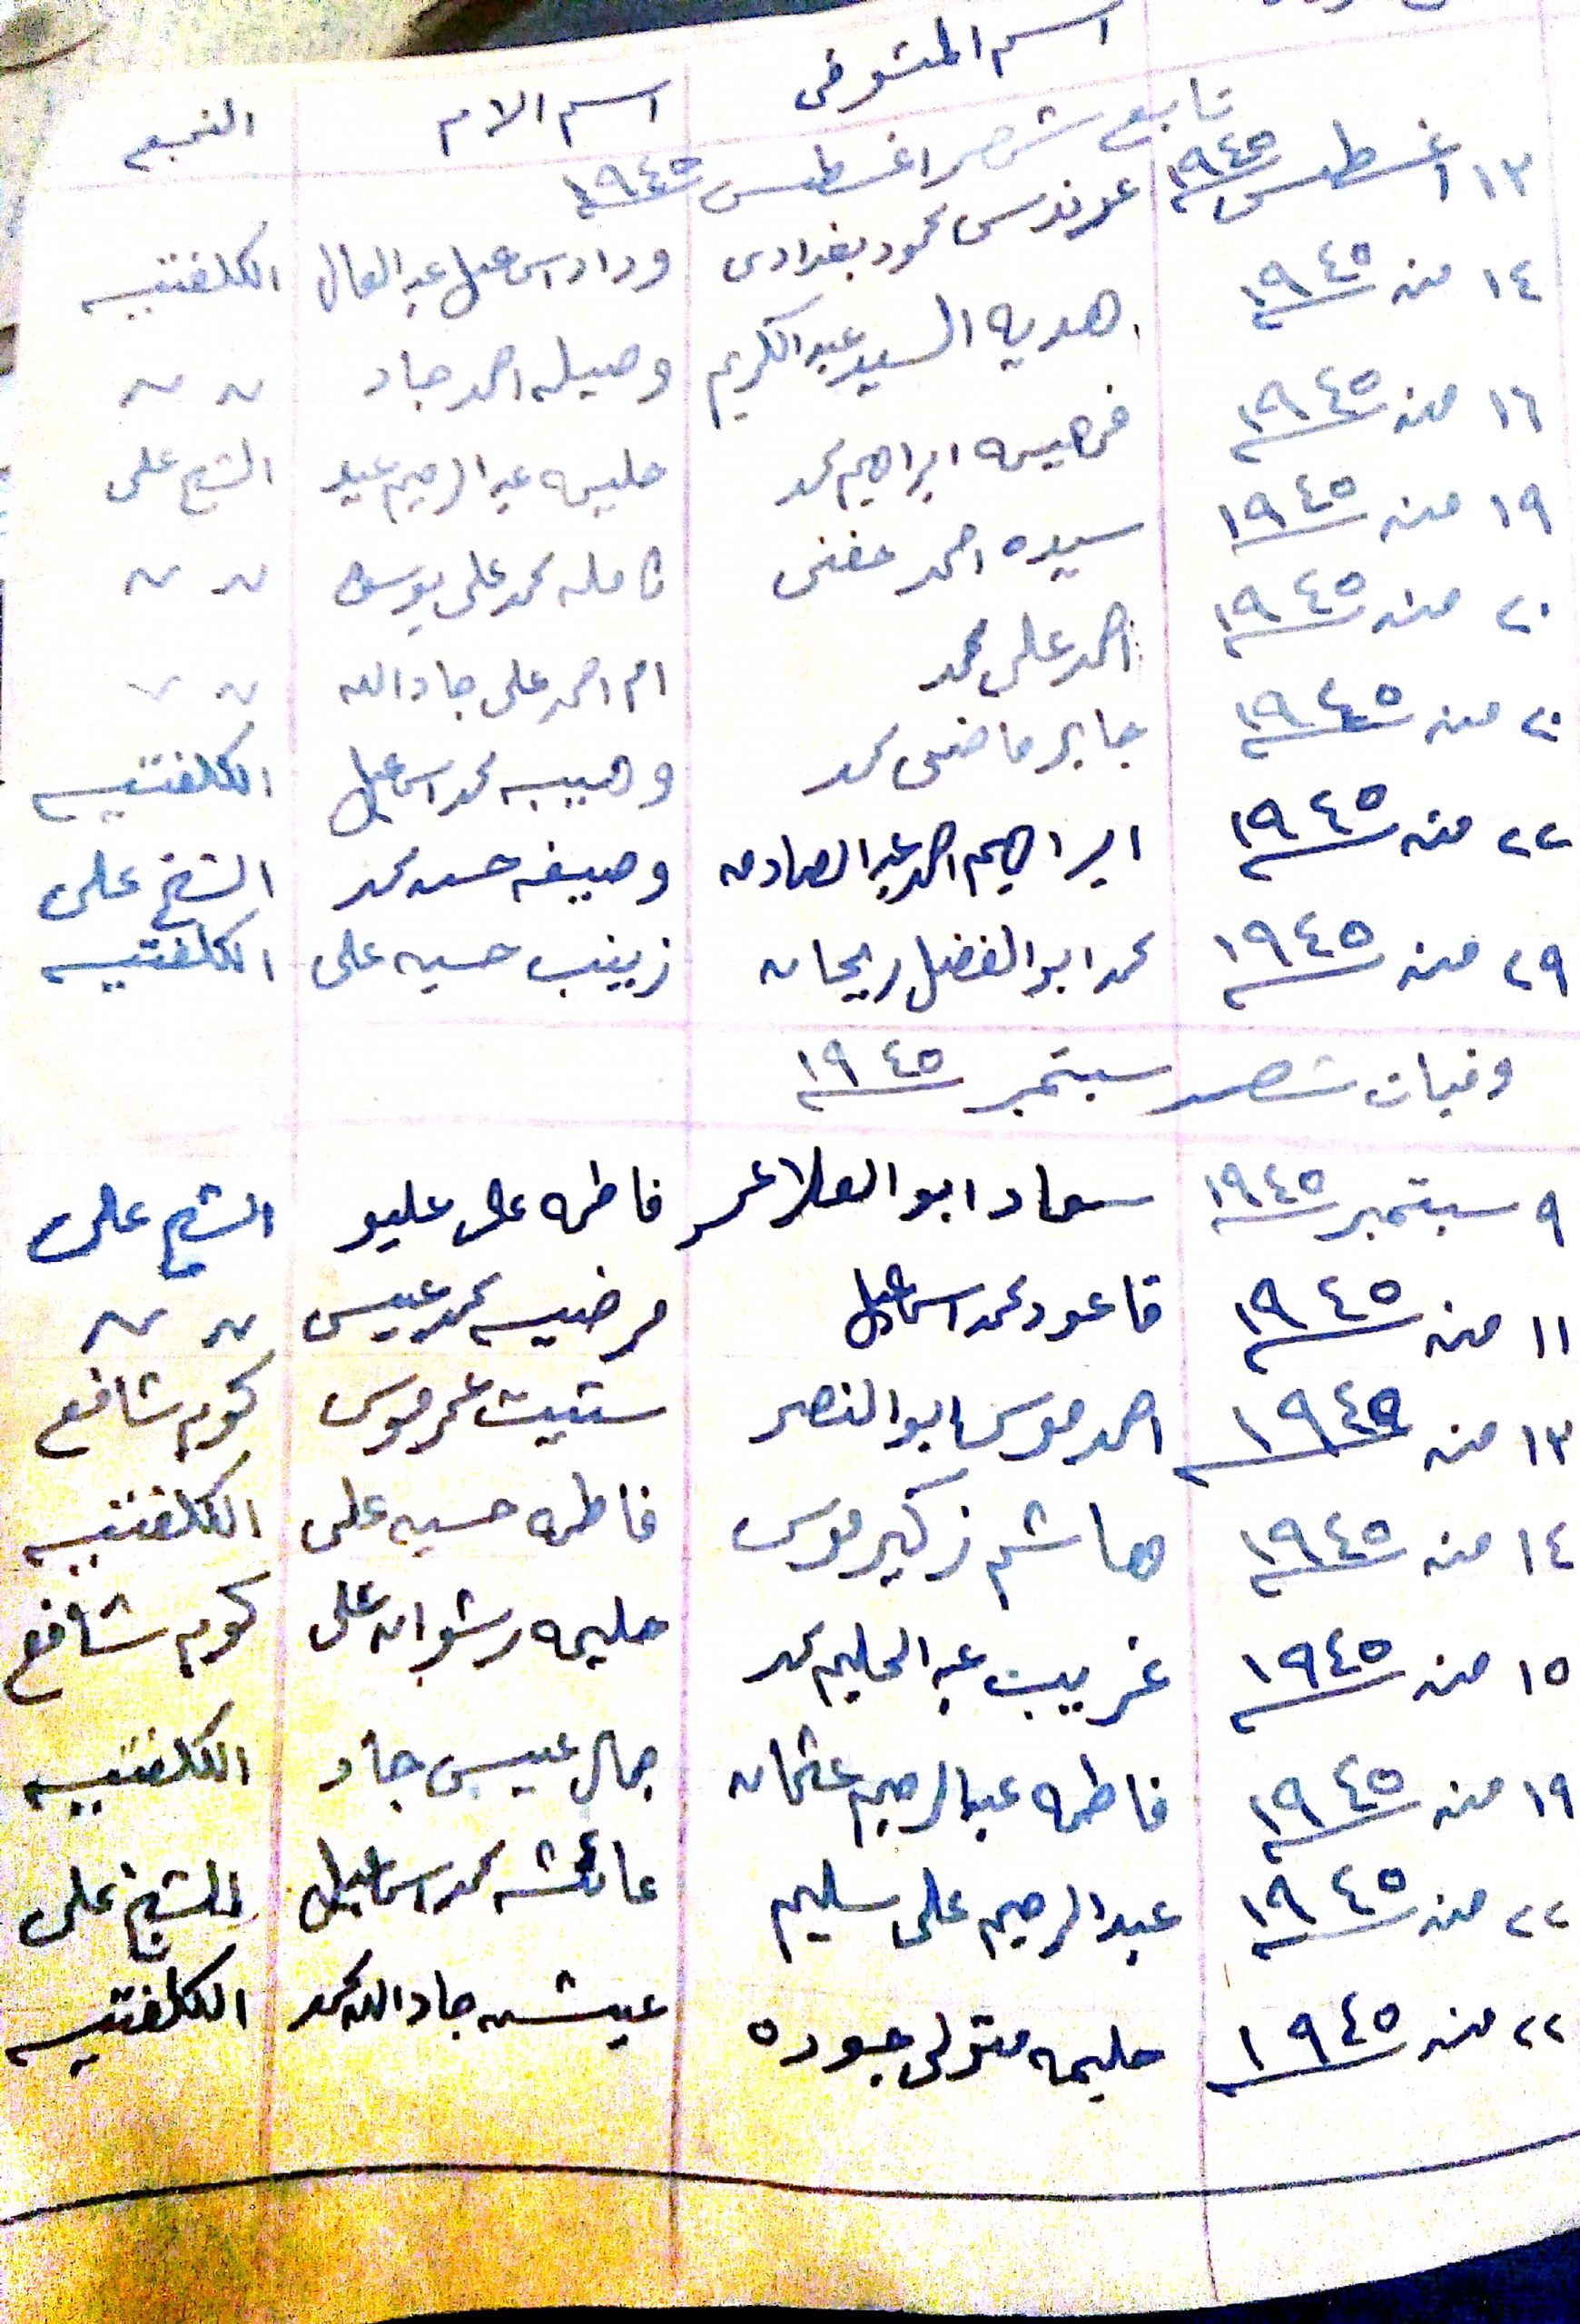 اسم المتوفى اسم الام النجع
تابع شهر اغسطس ١٩٤٥
١٣ اغسطس ١٩٤٥ محمود بغدادى وداد اسماعيل عبد العال الكلفتيه
١٤ منه ١٩٤٥ هديه السيد عبد الكريم وصيله احمد جاد 〃 〃
١٦ منه ١٩٤٥ فهيمه ابراهيم محمد حليمه عبد الرحيم عبيد الشيخ على
١٩ منه ١٩٤٥ سيده احمد عفنى كامله محمد على يوسف 〃 〃
٢٠ منه ١٩٤٥ احمد على محمد ام احمد على جاد الله 〃 〃
٢٠ منه ١٩٤٥ جابر ماضى محمد وهيبه محمد اسماعيل الكلفتيه
٢٢ منه ١٩٤٥ ابراهيم احمد عبد الصادق وصيفه حسن محمد الشيخ على
٢٩ منه ١٩٤٥ محمد ابو الفضل ريحان زينب حسين على الكلفتيه
وفيات شهر سبتمبر ١٩٤٥
٩ سبتمبر ١٩٤٥ سعاد ابو العلا عمر فاطمه على عليو الشيخ على
١١ منه ١٩٤٥ قاعود محمد اسماعيل مرضيه محمد عيسى 〃 〃
١٣ منه ١٩٤٥ احمد موسى ابو النصر ستيت عمر موسى كوم شافع
١٤ منه ١٩٤٥ هاشم زكير موسى فاطمه حسين على الكلفتيه
١٥ منه ١٩٤٥ غريب عبد الحليم محمد حليمه رشوان على كوم شافع
١٩ منه ١٩٤٥ فاطمه عبد الرحيم عثمان جمال عيسى جاد الكلفتيه
٢٢ منه ١٩٤٥ عبد الرحيم على سليم عائشه محمد اسماعيل الشيخ على
٢٢ منه ١٩٤٥ حليمه متولى جوده عيشه جاد الله محمد الكلفتيه